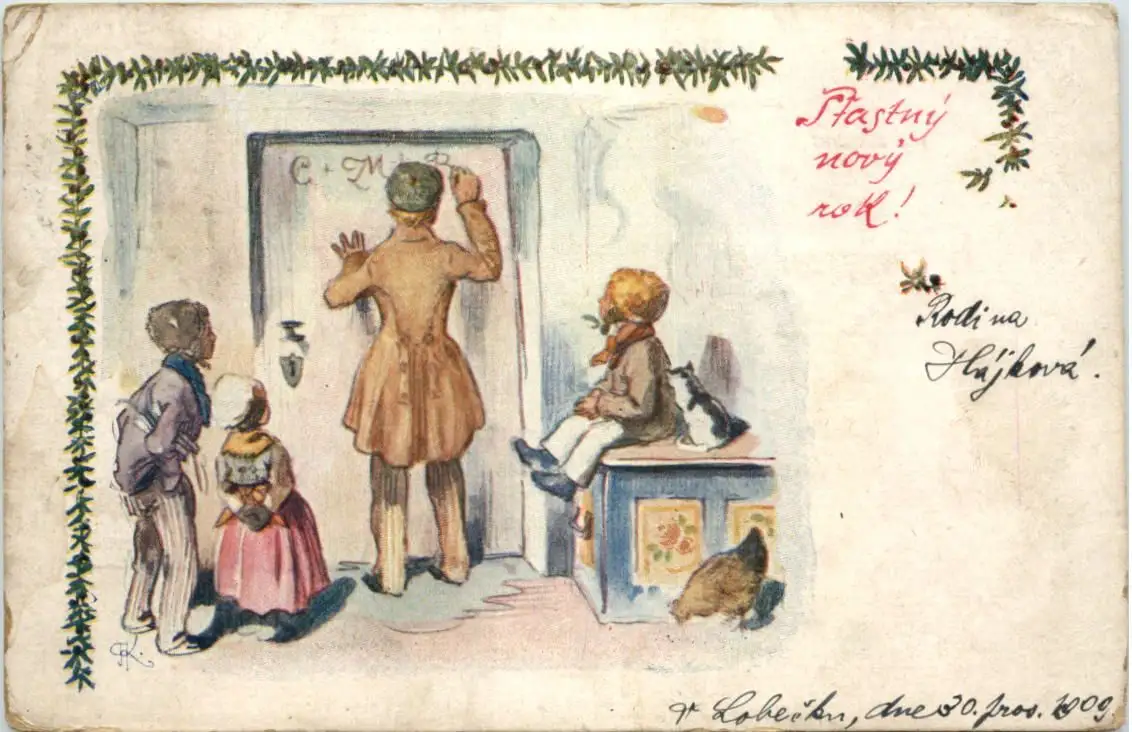 C + M + B
Šťastný
nový
rok!
Rodina
Hájková.
V Lobečku, dne 30. pros. 1909.
HK.